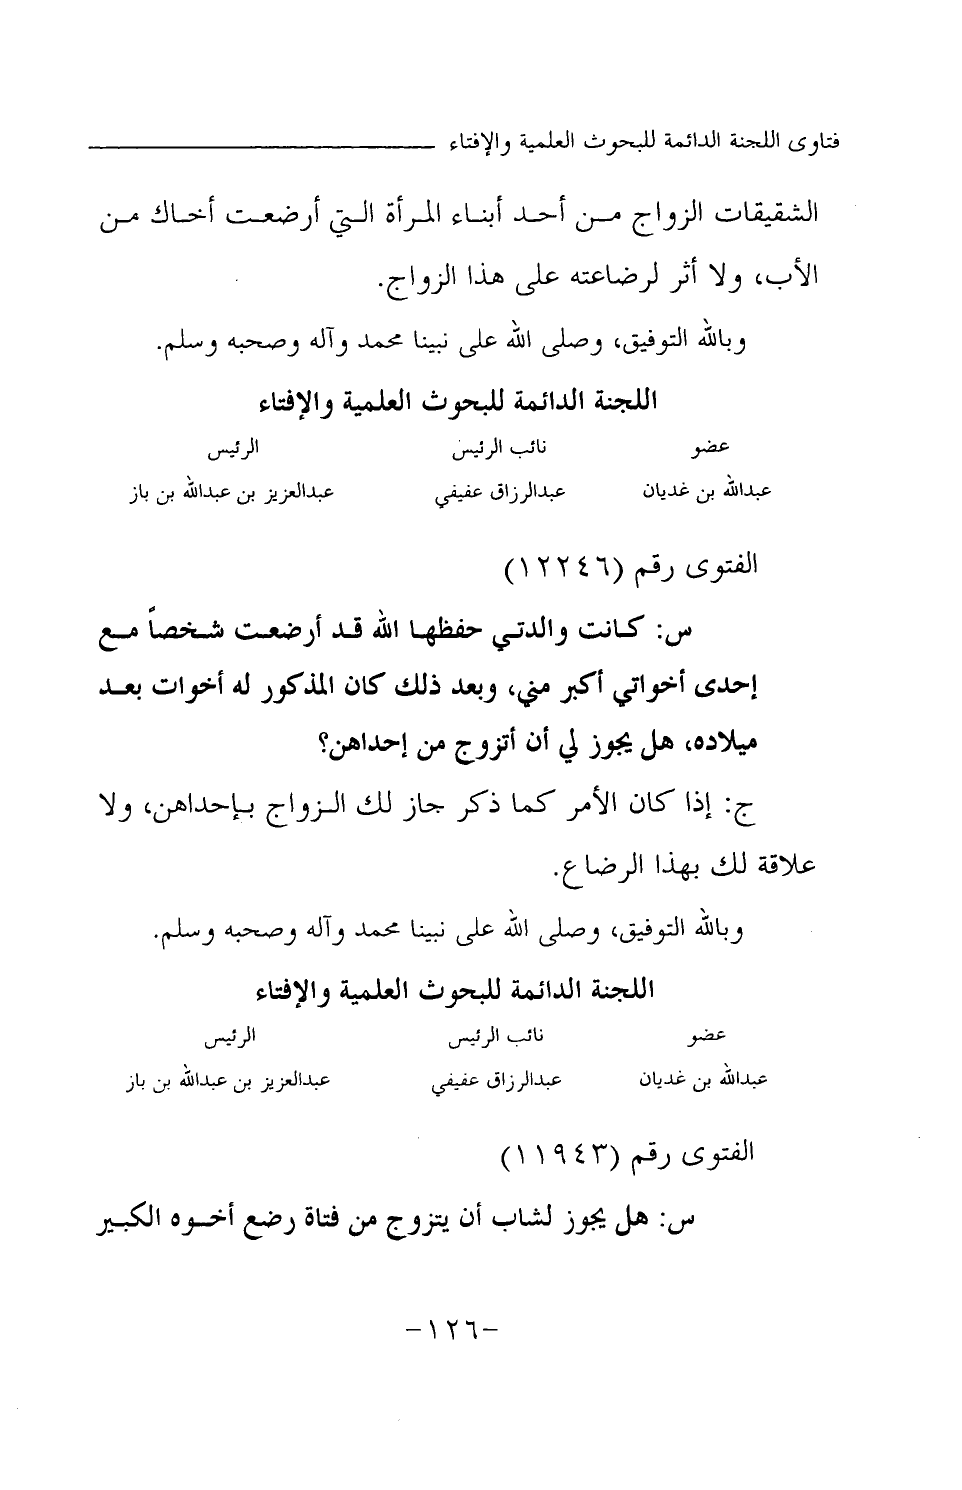 فتاوى اللجنة الدائمة للبحوث العلمية والإفتاء
الشقيقات الزواج من أحد أبناء المرأة التي أرضعت أخاك من
الأب، ولا أثر لرضاعته على هذا الزواج.
وبالله التوفيق، وصلى الله على نبينا محمد وآله وصحبه وسلم.
اللجنة الدائمة للبحوث العلمية والإفتاء
عضو نائب الرئيس الرئيس
عبدالله بن غديان عبدالرزاق عفيفي عبدالعزيز بن عبدالله بن باز
الفتوى رقم (١٢٢٤٦)
س: كانت والدتي حفظها الله قد أرضعت شخصاً مع
إحدى أخواتي أكبر مني، وبعد ذلك كان المذكور له أخوات بعد
ميلاده، هل يجوز لي أن أتزوج من إحداهن؟
ج: إذا كان الأمر كما ذكر جاز لك الزواج بإحداهن، ولا
علاقة لك بهذا الرضاع.
وبالله التوفيق، وصلى الله على نبينا محمد وآله وصحبه وسلم.
اللجنة الدائمة للبحوث العلمية والإفتاء
عضو نائب الرئيس الرئيس
عبدالله بن غديان عبدالرزاق عفيفي عبدالعزيز بن عبدالله بن باز
الفتوى رقم (١١٩٤٣)
س: هل يجوز لشاب أن يتزوج من فتاة رضع أخوه الكبير
-١٢٦-